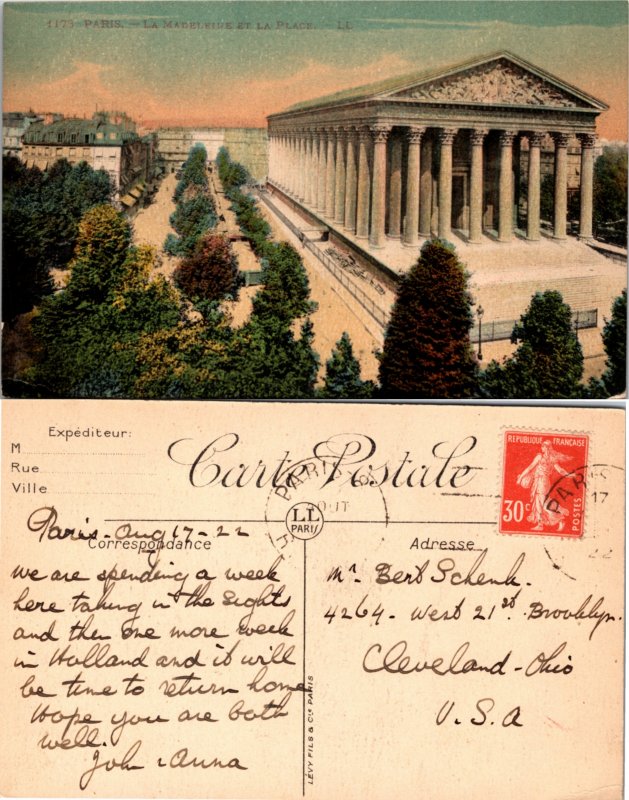 1173 PARIS. - LA MADELEINE ET LA PLACE. - LL
Expéditeur:
M
Rue
Ville
Carte Postale
PARIS
AOUT
LL
PARIS
REPUBLIQUE FRANÇAISE
30c
POSTES
PARIS
17
22
Correspondance
Adresse
Paris - Aug 17 - 22
We are spending a week
here taking in the sights
and then one more week
in Holland and it will
be time to return home
Hope you are both
well.
John & Anna
Mr. Bert Schenk.
4264 - West 21st. Brooklyn.
Cleveland - Ohio
U.S.A
LÉVY FILS & Cie PARIS